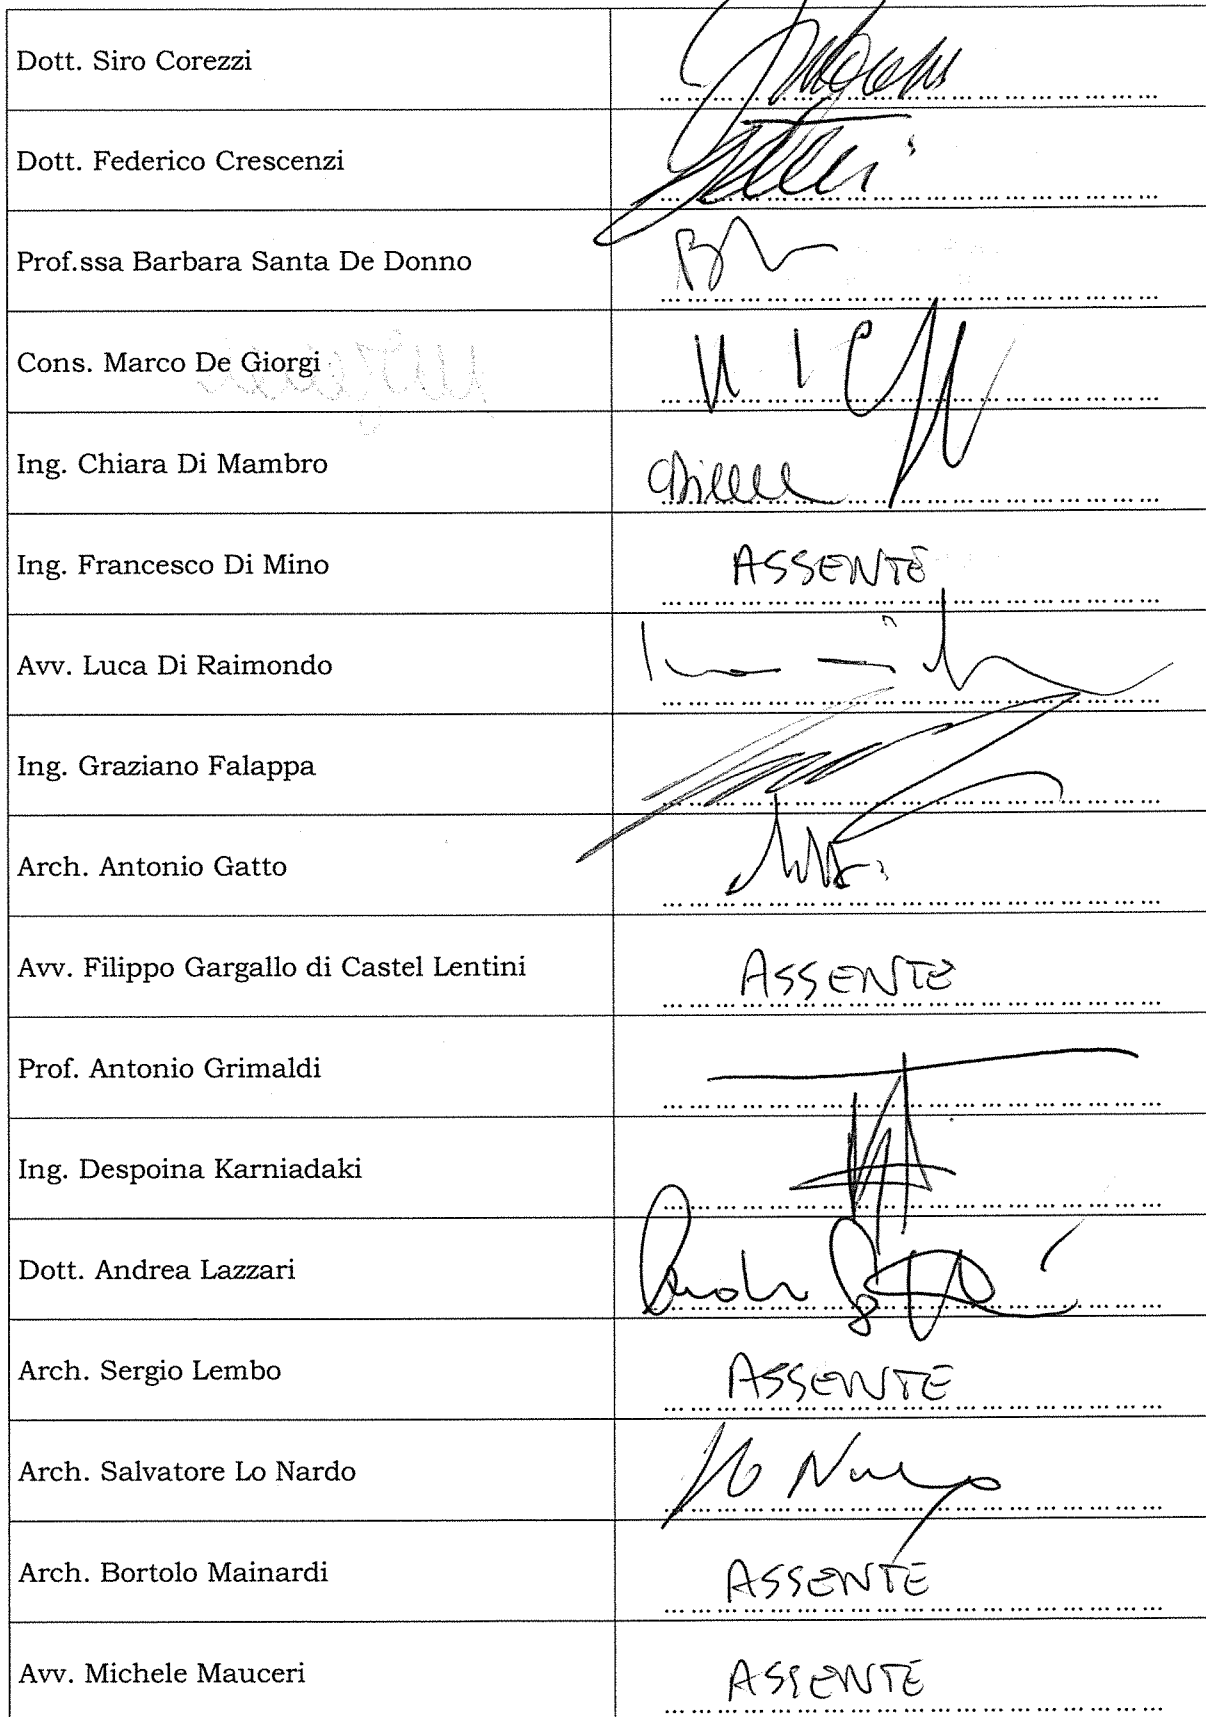 Dott. Siro Corezzi
Dott. Federico Crescenzi
Prof.ssa Barbara Santa De Donno
Cons. Marco De Giorgi
Ing. Chiara Di Mambro
Ing. Francesco Di Mino ASSENTE
Avv. Luca Di Raimondo
Ing. Graziano Falappa
Arch. Antonio Gatto
Avv. Filippo Gargallo di Castel Lentini ASSENTE
Prof. Antonio Grimaldi
Ing. Despoina Karniadaki
Dott. Andrea Lazzari
Arch. Sergio Lembo ASSENTE
Arch. Salvatore Lo Nardo
Arch. Bortolo Mainardi ASSENTE
Avv. Michele Mauceri ASSENTE